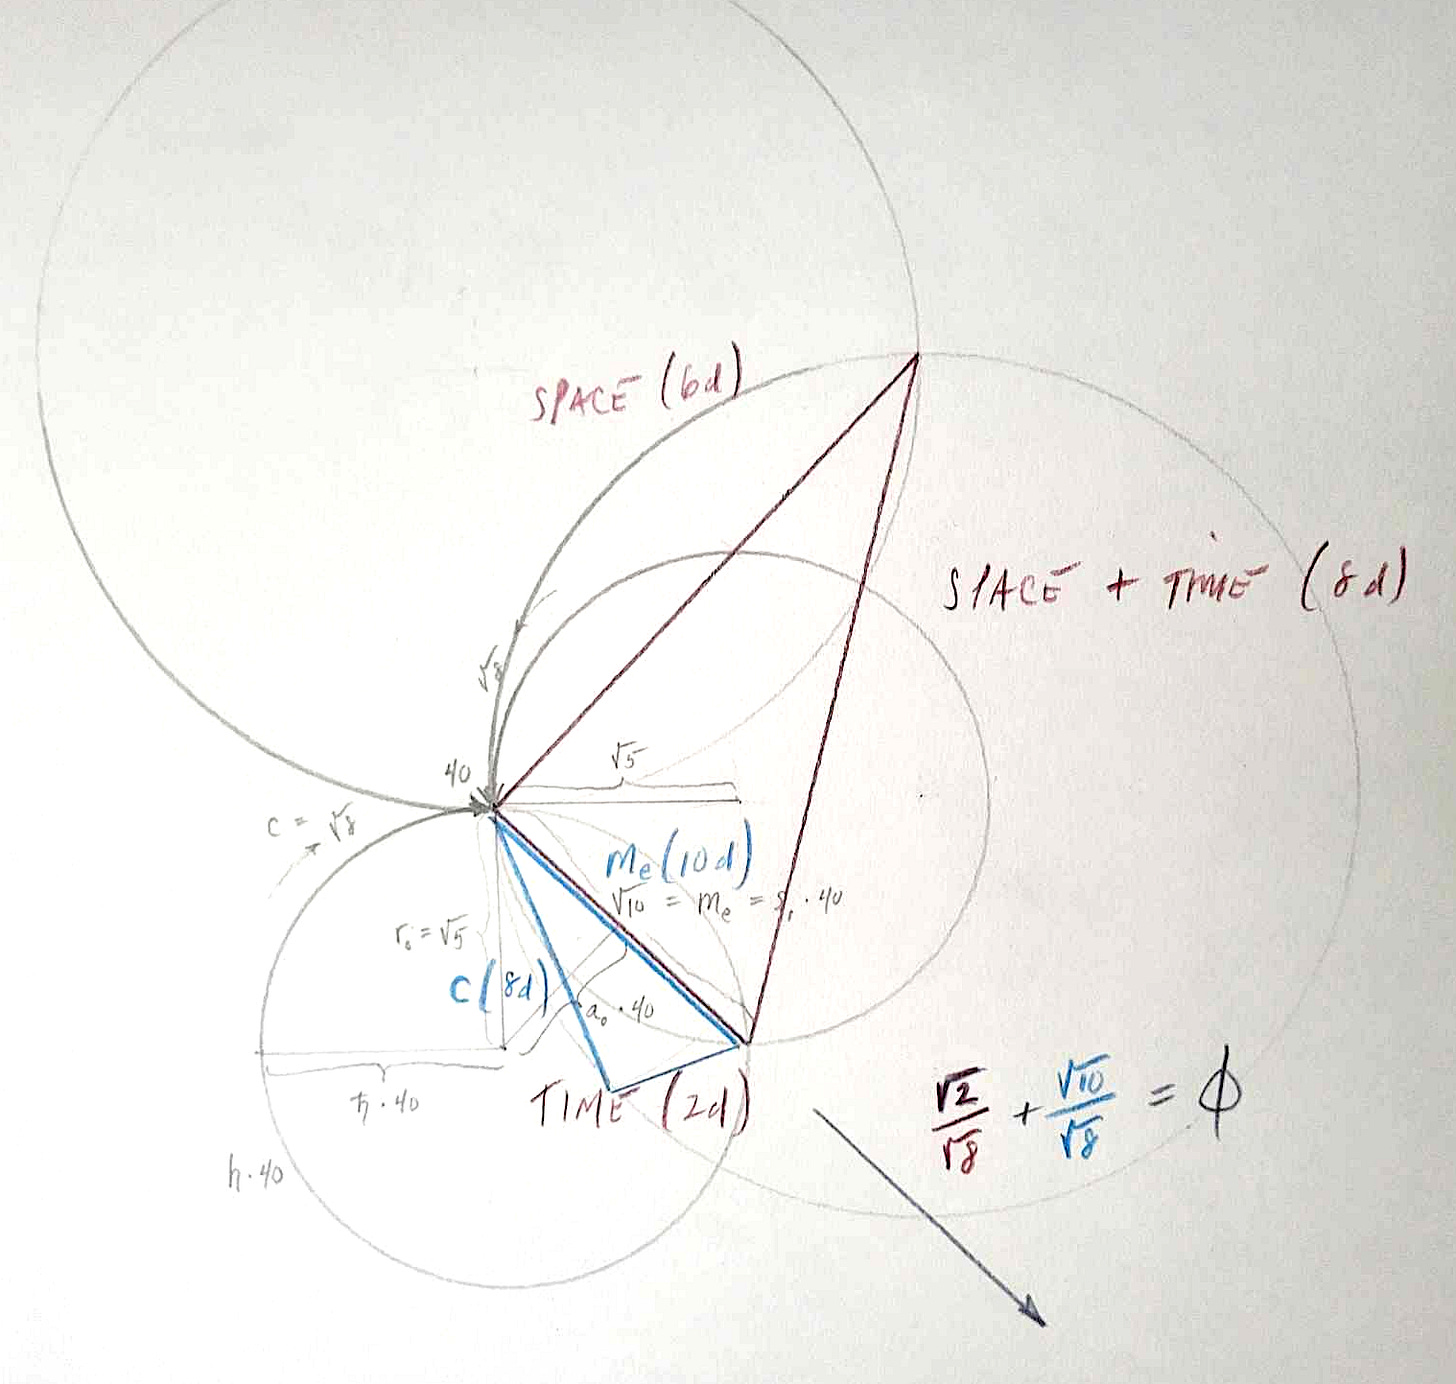 SPACE (6d)
SPACE + TIME (8d)
√8
40
√5
c = √8
me (10d)
√10 = me = s₁ · 40
r₀ = √5
c (8d)
a₀ · 40
ħ · 40
TIME (2d)
√2/√8 + √10/√8 = ϕ
h · 40